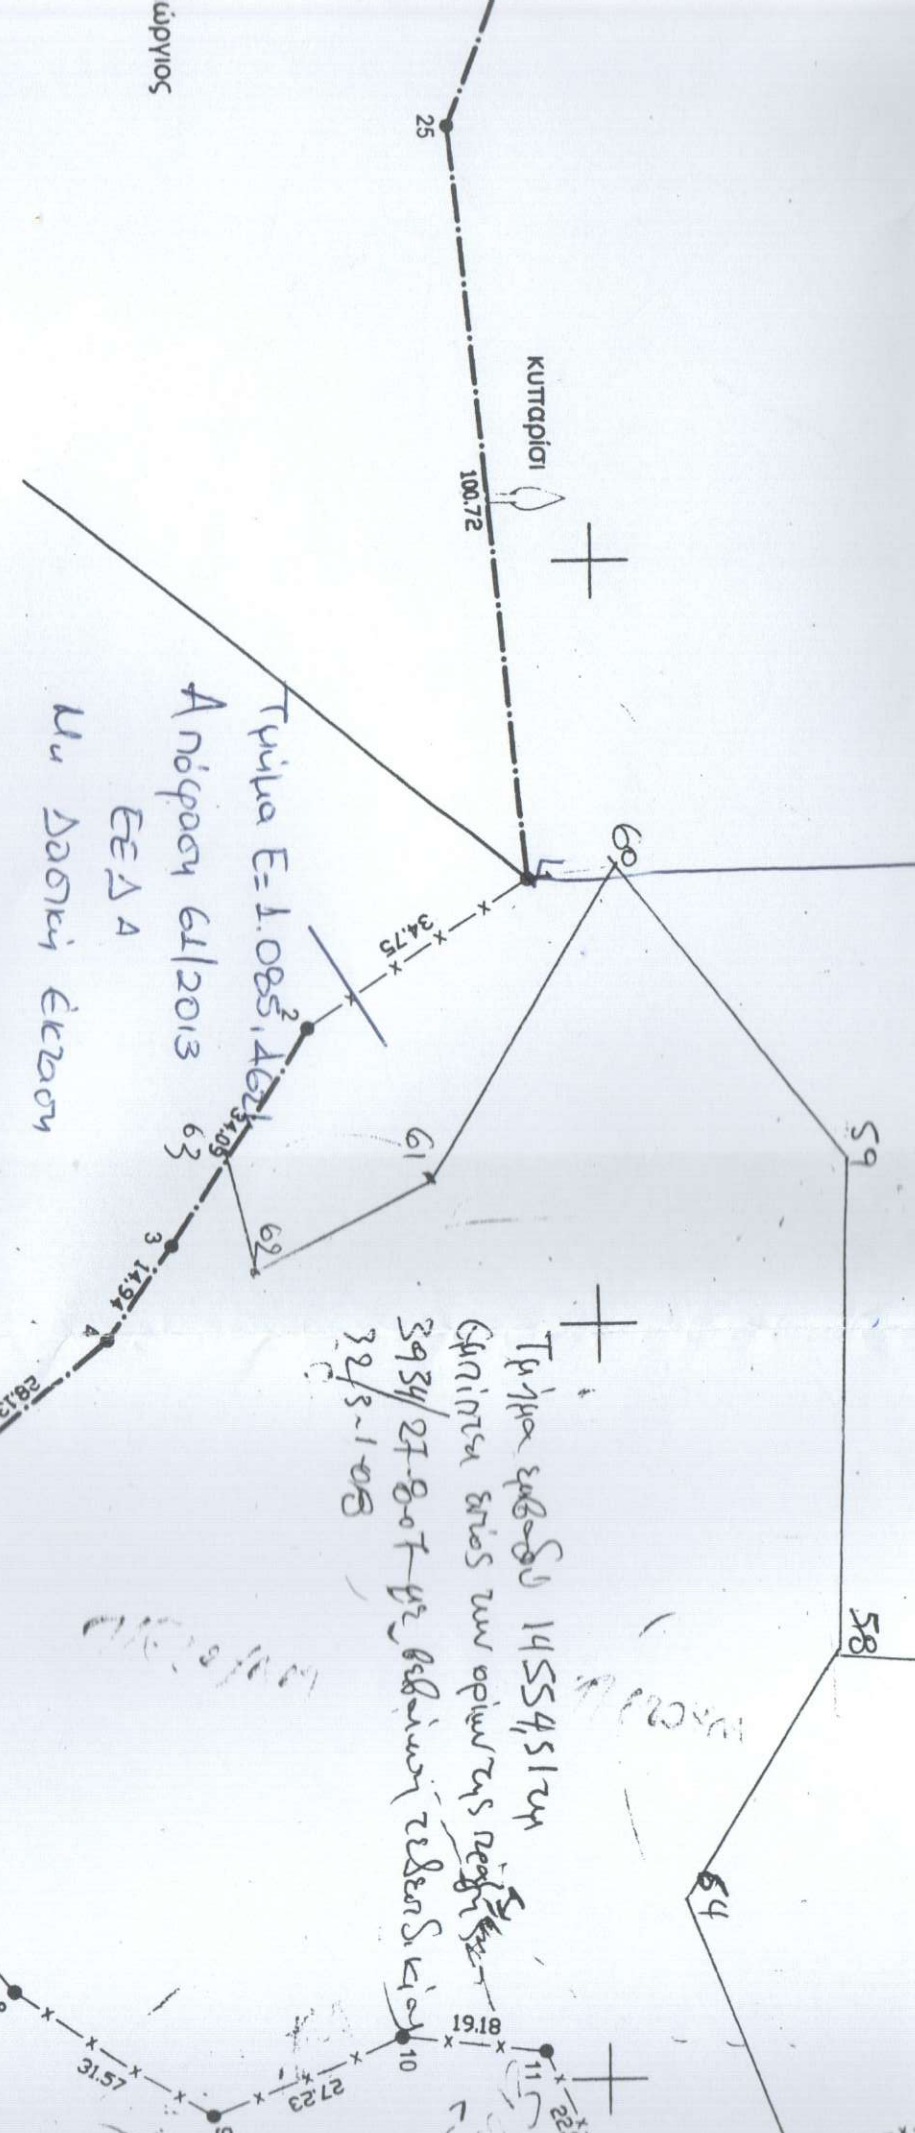 ώργιος
25
κυπαρίσι
100.72
1
60
59
58
64
34.75
2
61
62
63
34.05
3
14.94
4
28.13
Τμήμα Ε=1.085,462
Απόφαση 61/2013
ΕΕΔΑ
Μη Δασική Έκταση
Τμήμα εμβαδού 14554,51 τμ
εμπίπτει εντός των ορίων της πράξης
3934/27-8-07 με βεβαίωση τελεσιδικίας
32/3-1-08
19.18
10
11
22
27.23
31.57
9